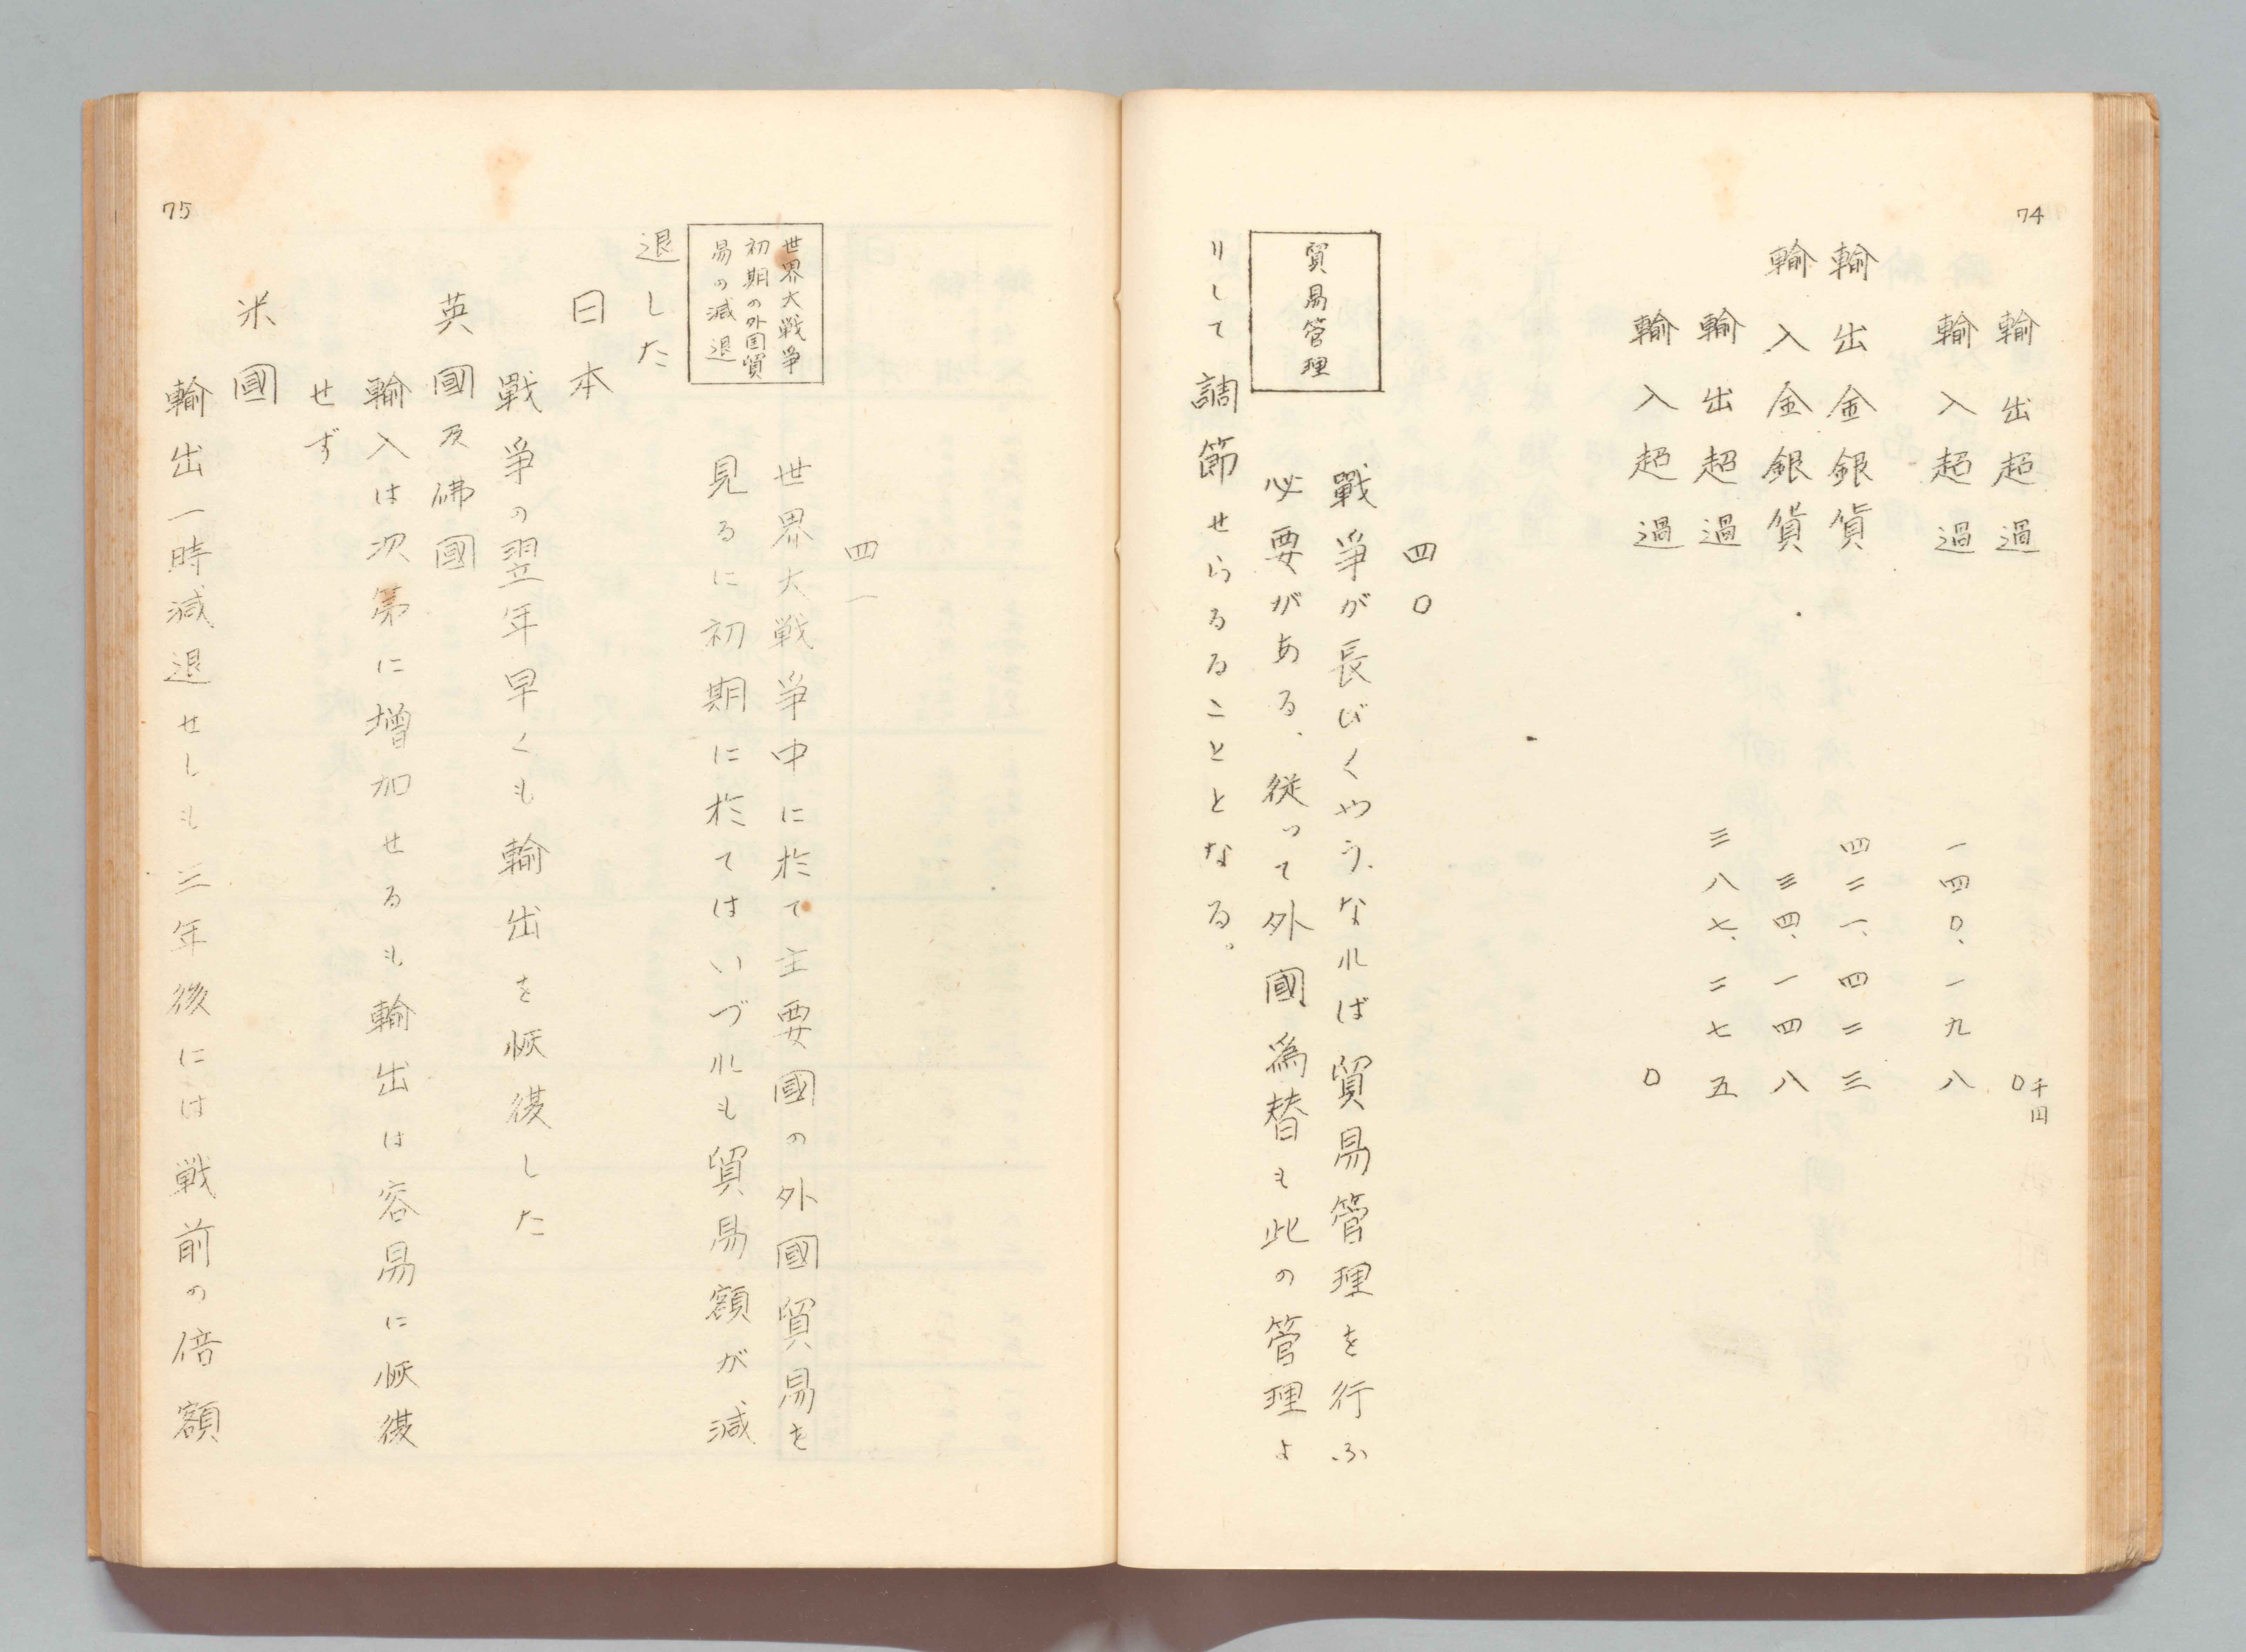 74
輸出超過 〇千円
輸入超過 一四〇、一九八
輸出金銀貨 四二一、四二三
輸入金銀貨 三四、一四八
輸出超過 三八七、二七五
輸入超過 〇
四〇
貿易管理
戰爭が長びくやうなれば貿易管理を行ふ
必要がある、従って外國為替も此の管理よ
りして調節せらるることとなる。
75
四一
世界大戦爭
初期の外国貿
易の減退
世界大戦爭中に於て主要國の外國貿易を
見るに初期に於てはいづれも貿易額が減
退した
日本
戰爭の翌年早くも輸出を恢復した
英國及佛國
輸入は次第に増加せるも輸出は容易に恢復
せず
米國
輸出一時減退せしも三年後には戦前の倍額